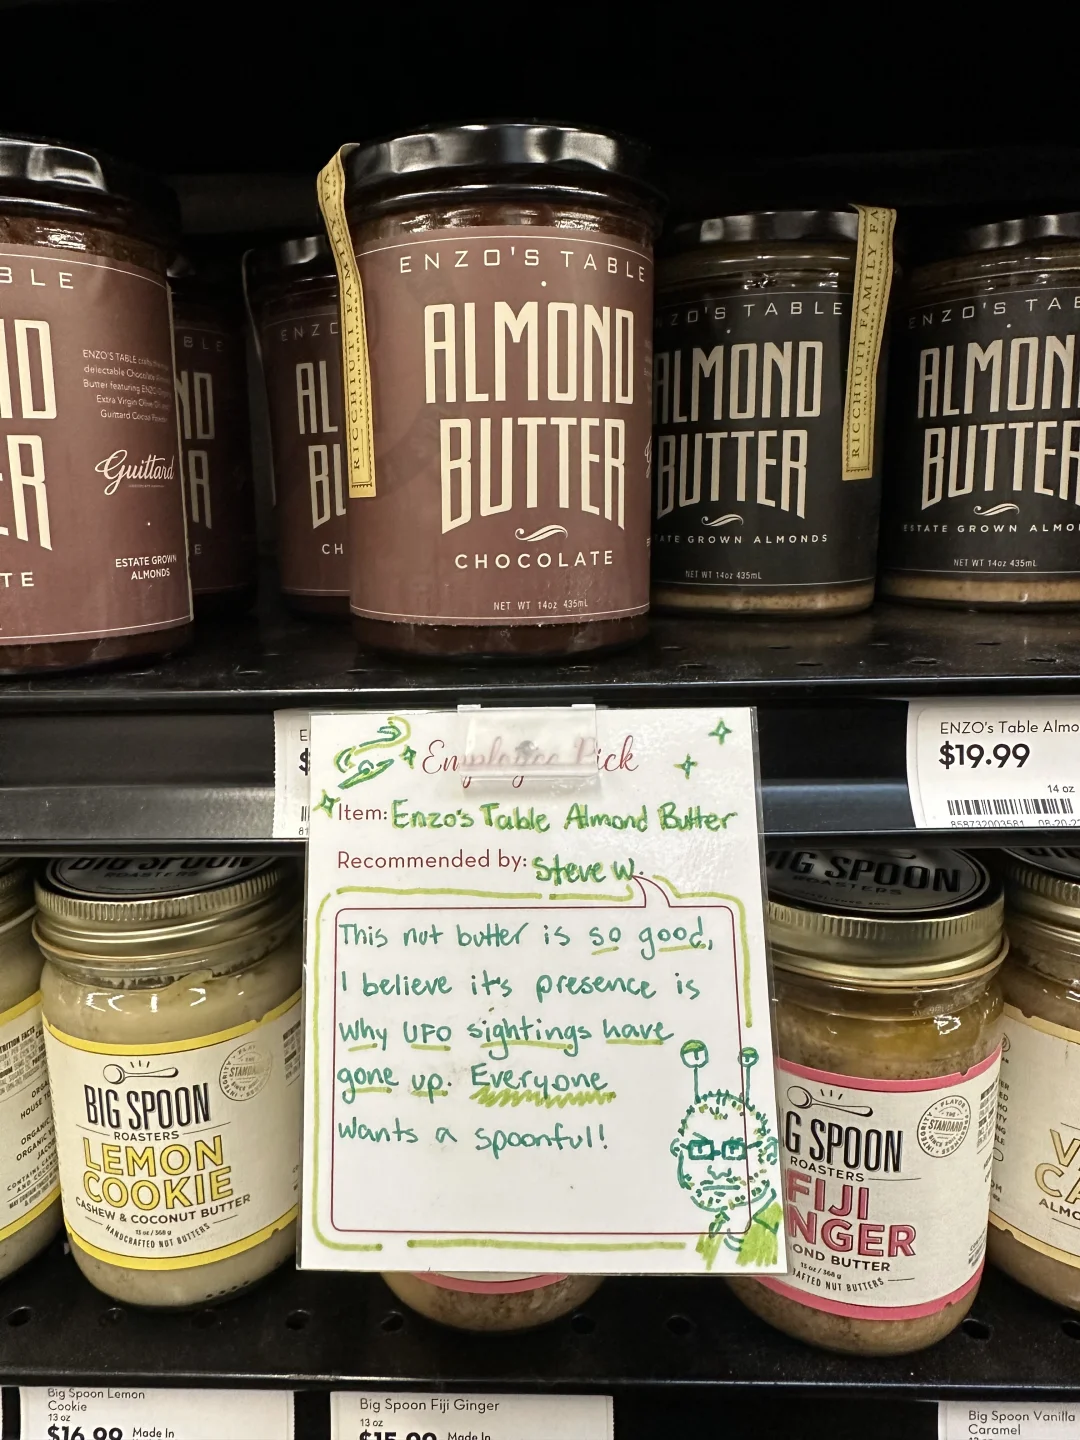 BLE
ENZO'S TABLE
delectable
Butter featuring
Extra Virgin
Guittard Cocoa
Guittard
ESTATE GROWN
ALMONDS
ENZO'S TABLE
ALMOND
BUTTER
CHOCOLATE
NET WT 14oz 435mL
RICCHIUTI FAMILY FA
ENZO'S TABLE
ALMOND
BUTTER
GROWN ALMONDS
NET WT 14oz 435mL
RICCHIUTI FAMILY FA
ENZO'S TAB
ALMON
BUTTER
ESTATE GROWN ALMO
NET WT 14oz 435mL
ENZO's Table Almo
$19.99
14 oz
858732003581 08-20-2
Employee Pick
Item: Enzo's Table Almond Butter
Recommended by: Steve W.
This nut butter is so good,
I believe it's presence is
why UFO sightings have
gone up. Everyone
wants a spoonful!
BIG SPOON
ROASTERS
BIG SPOON
ROASTERS
LEMON
COOKIE
CASHEW & COCONUT BUTTER
13 oz / 368 g
HANDCRAFTED NUT BUTTERS
BIG SPOON
ROASTERS
G SPOON
ROASTERS
FIJI
NGER
OND BUTTER
13 oz / 368 g
AFTED NUT BUTTERS
Big Spoon Lemon
Cookie
13 oz
$16.99 Made In
Big Spoon Fiji Ginger
13 oz
$15.99 Made In
Big Spoon Vanilla
Caramel
13 oz